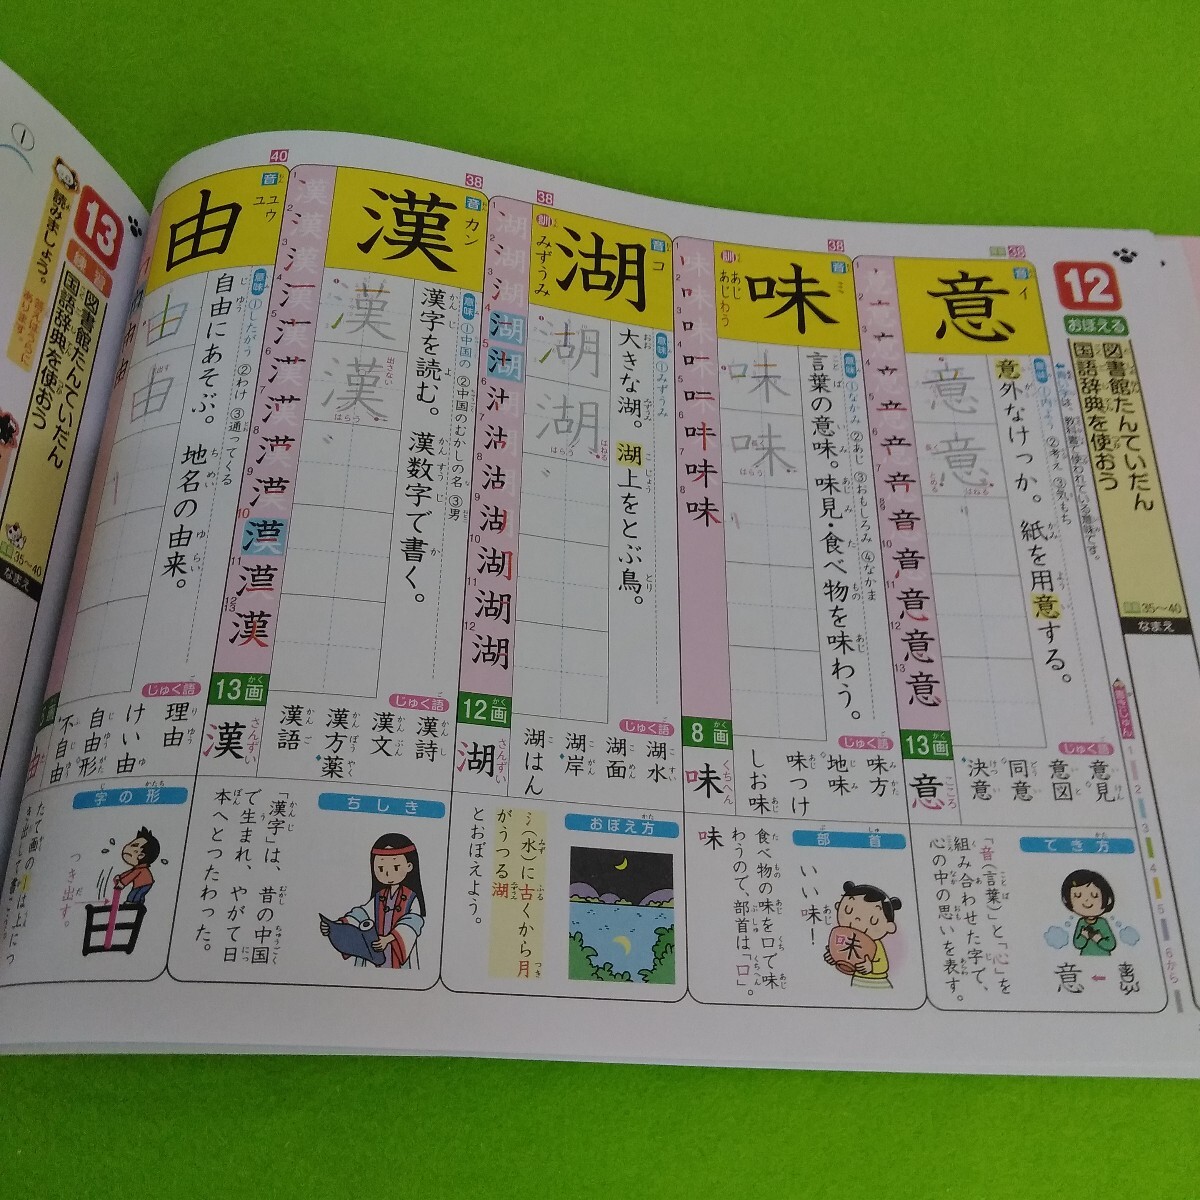 12
おぼえる
図書館たんていだん
国語辞典を使おう
35〜40
なまえ
38
意
音
イ
意味
②考え ③気もち
教科書で使われている意味です。
意外なけっか。紙を用意する。
はねる
13画
意
こころ
じゅく語
意見
意図
同意
決意
でき方
「音(言葉)」と「心」を
組み合わせた字で、
心の中の思いを表す。
意
38
味
音
ミ
訓
あじ
あじわう
意味 ①なかみ ②あじ ③おもしろみ ④なかま
言葉の意味。味見・食べ物を味わう。
はらう
8画
味
くちへん
じゅく語
味方
地味
味つけ
しお味
部首
食べ物の味を口で味
わうので、部首は「口」。
いい味!
味
味
38
湖
音
コ
訓
みずうみ
意味 ①みずうみ
大きな湖。湖上をとぶ鳥。
はねる
はらう
12画
湖
さんずい
じゅく語
湖水
湖面
湖岸
湖はん
おぼえ方
氵(水)に古くから月
がうつる湖
とおぼえよう。
38
漢
音
カン
意味 ①中国の ②中国のむかしの名 ③男
漢字を読む。漢数字で書く。
出さない
はらう
13画
漢
さんずい
じゅく語
漢詩
漢文
漢方薬
漢語
ちしき
「漢字」は、昔の中国
で生まれ、やがて日
本へとったわった。
40
由
音
ユ
ユウ
意味 ①したがう ②わけ ③通ってくる
自由にあそぶ。地名の由来。
出す
画
由
じゅく語
理由
けい由
自由形
不自由
字の形
つき出す。
由
13
図書館たんていだん
国語辞典を使おう
35〜40
なまえ
読みましょう。
①